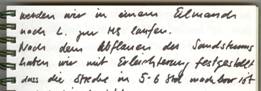 werden wir in einem Eilmarsch
nach L. zur HS laufen.
Nach dem Abflauen des Sandsturms
haben wir mit Erleichterung festgestellt
dass die Strecke in 5-6 Std machbar ist